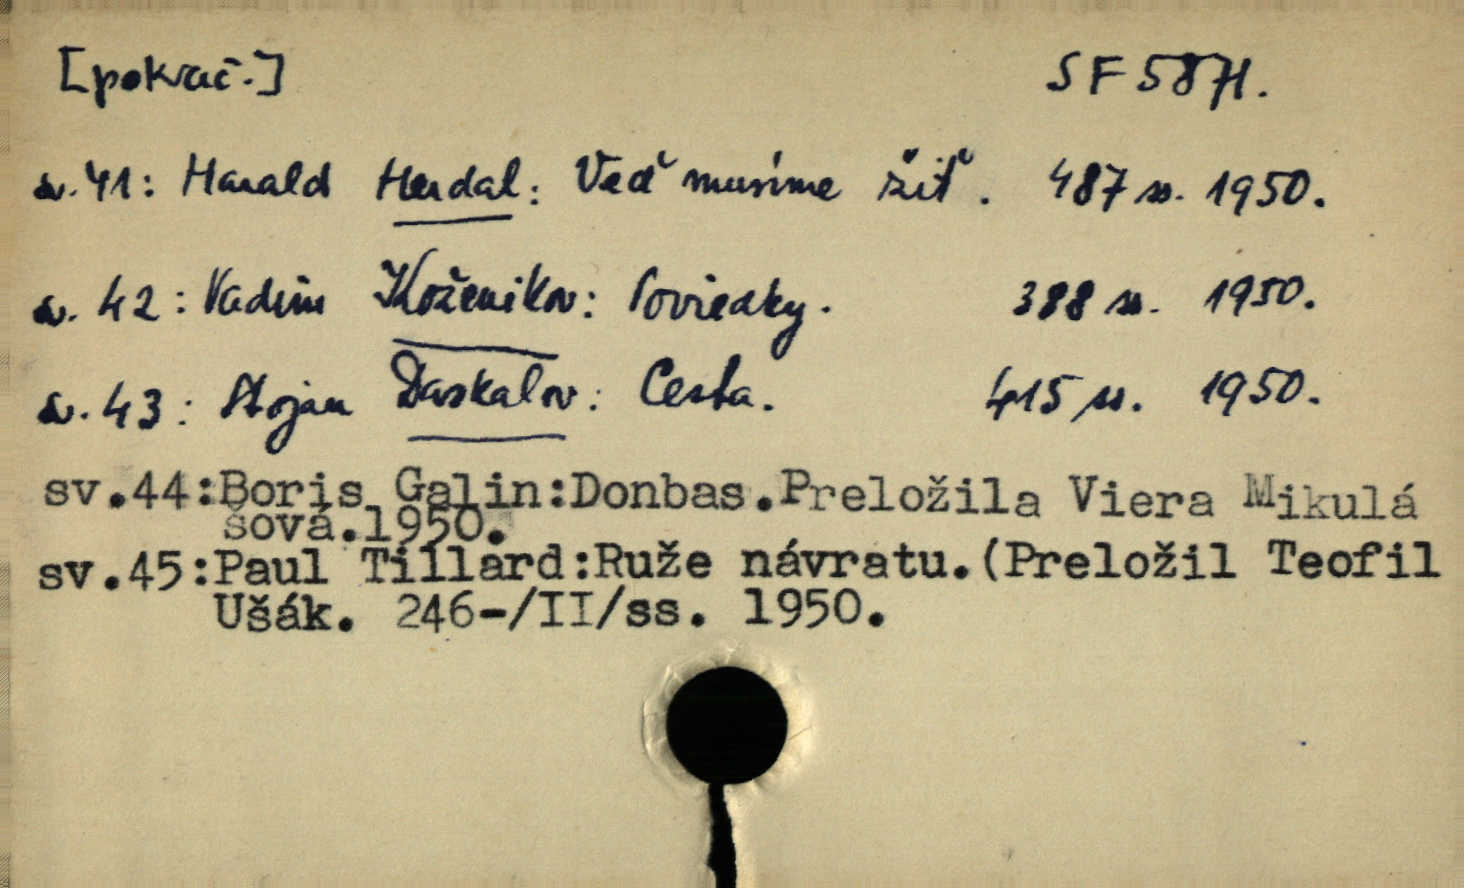 [pokrač.] SF 5871.
sv. 41: Harald Herdal: Veď musíme žiť. 487 ss. 1950.
sv. 42: Vadim Koženikov: Poviedky. 388 ss. 1950.
sv. 43: Stojan Daskalov: Cesta. 415 ss. 1950.
sv.44:Boris Galin:Donbas.Preložila Viera Mikulá
šová.1950.
sv.45:Paul Tillard:Ruže návratu.(Preložil Teofil
Ušák. 246-/II/ss. 1950.